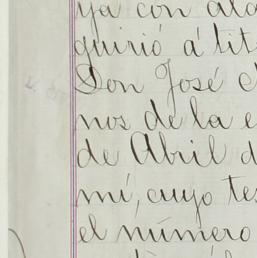 ya con
quirió á tit
Don José
nos de la e
de Abril d
mí, cuyo tes
el número